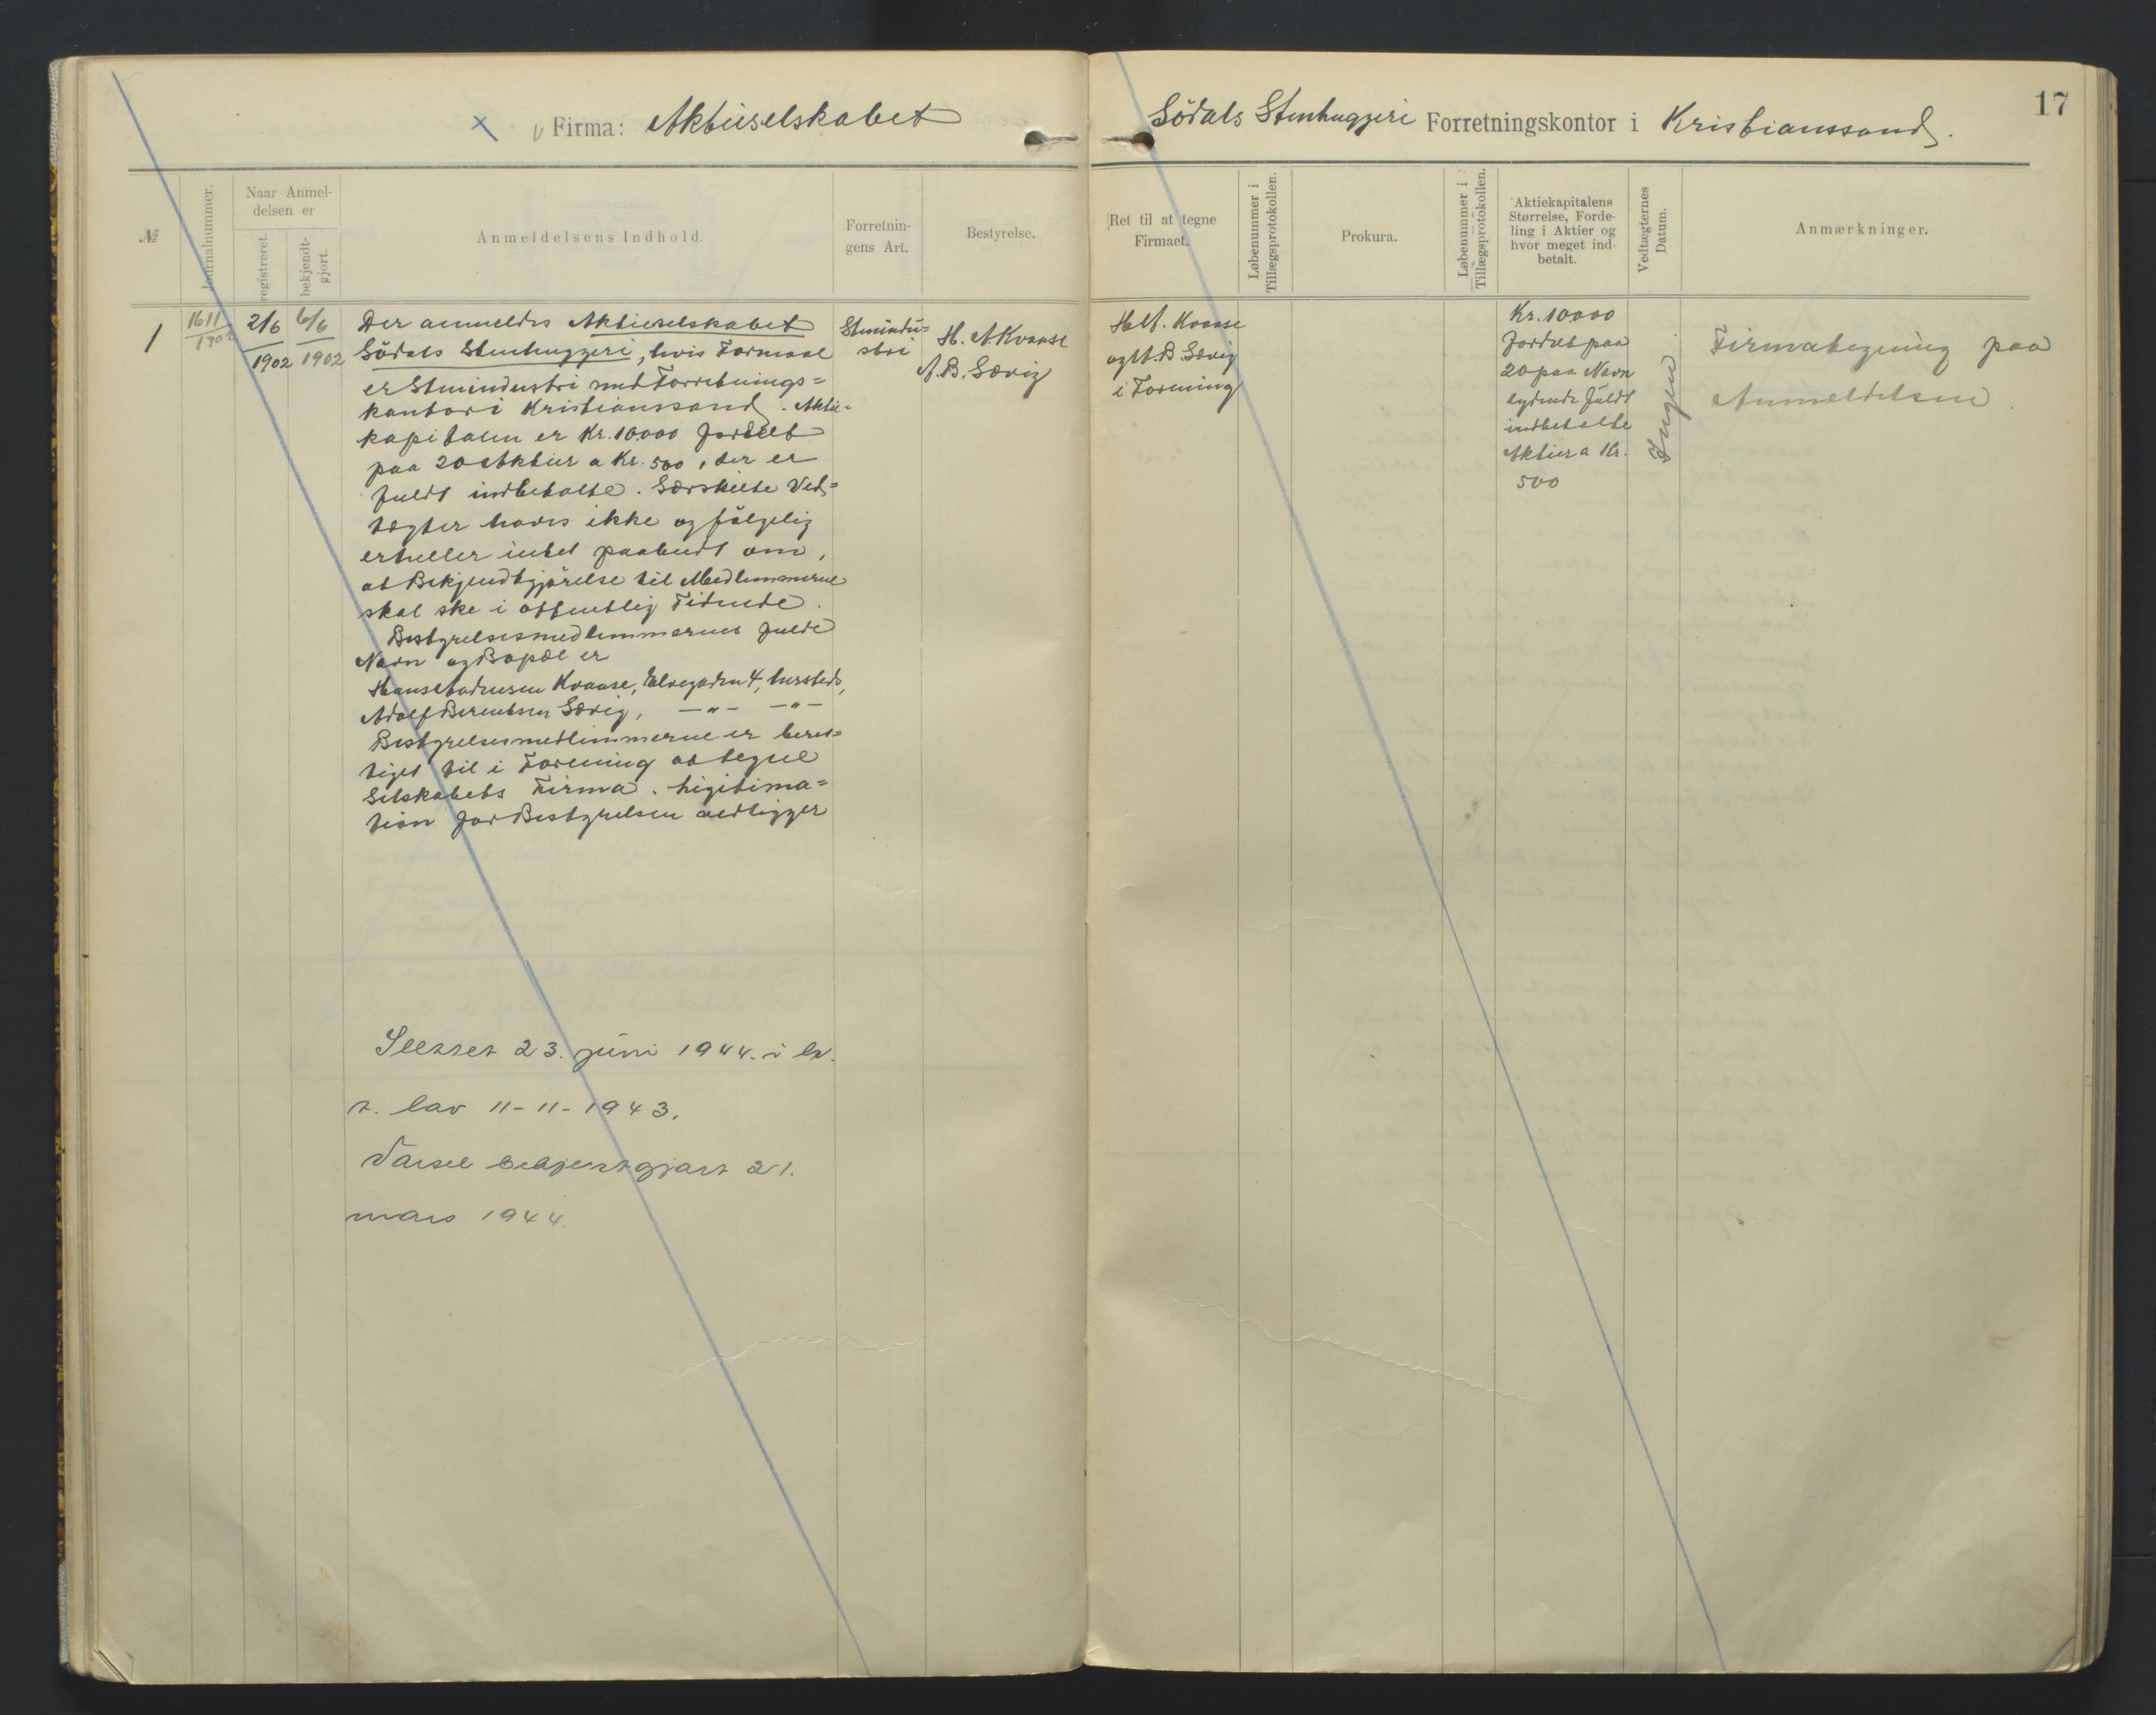 17
Firma: Aktieselskabet Södals Stenhuggeri Forretningskontor i Kristianssand.
№
Journalnummer.
Naar Anmel-
delsen er
registreret.
bekjendt-
gjort.
Anmeldelsens Indhold.
Forretnin-
gens Art.
Bestyrelse.
Ret til at tegne
Firmaet.
Løbenummer i
Tillægsprotokollen.
Prokura.
Løbenummer i
Tillægsprotokollen.
Aktiekapitalens
Størrelse, Forde-
ling i Aktier og
hvor meget ind-
betalt.
Vedtægternes
Datum.
Anmærkninger.
1
1611
1902
2/6
1902
6/6
1902
Der anmeldes Aktieselskabet
Södals Stenhuggeri, hvis Formaal
er Stenindustri med Forretnings=
kontor i Kristianssand. Aktie=
kapitalen er Kr. 10000 fordelt
paa 20 Aktier a Kr. 500, der er
fuldt indbetalte. Særskilte Ved=
tægter haves ikke og fölgelig
er heller intet paabudt om,
at Bekjendtgjörelse til Medlemmerne
skal ske i offentlig Tidende.
Bestyrelsesmedlemmernes fulde
Navn og Bopæl er
Hans Andreasen Kvaase, Elvegaden 4, hersteds,
Adolf Berentsen Særvig, —"— —"—
Bestyrelsesmedlemmerne er beret=
tiget til i Forening at tegne
Selskabets Firma. Legitima=
tion for Bestyrelsen vedligger
Slettet 23. juni 1944 i h.
t. lov 11-11-1943.
Varsel bekjentgjort 21.
mars 1944.
Stenindu=
stri
H. A Kvaase
A. B. Særvig
H A. Kvaase
og A. B Særvig
i Forening
Kr. 10000
fordelt paa
20 paa Navn
lydende fuldt
indbetalte
Aktier a Kr.
500
Ingen.
Firmategning paa
Anmeldelsen.